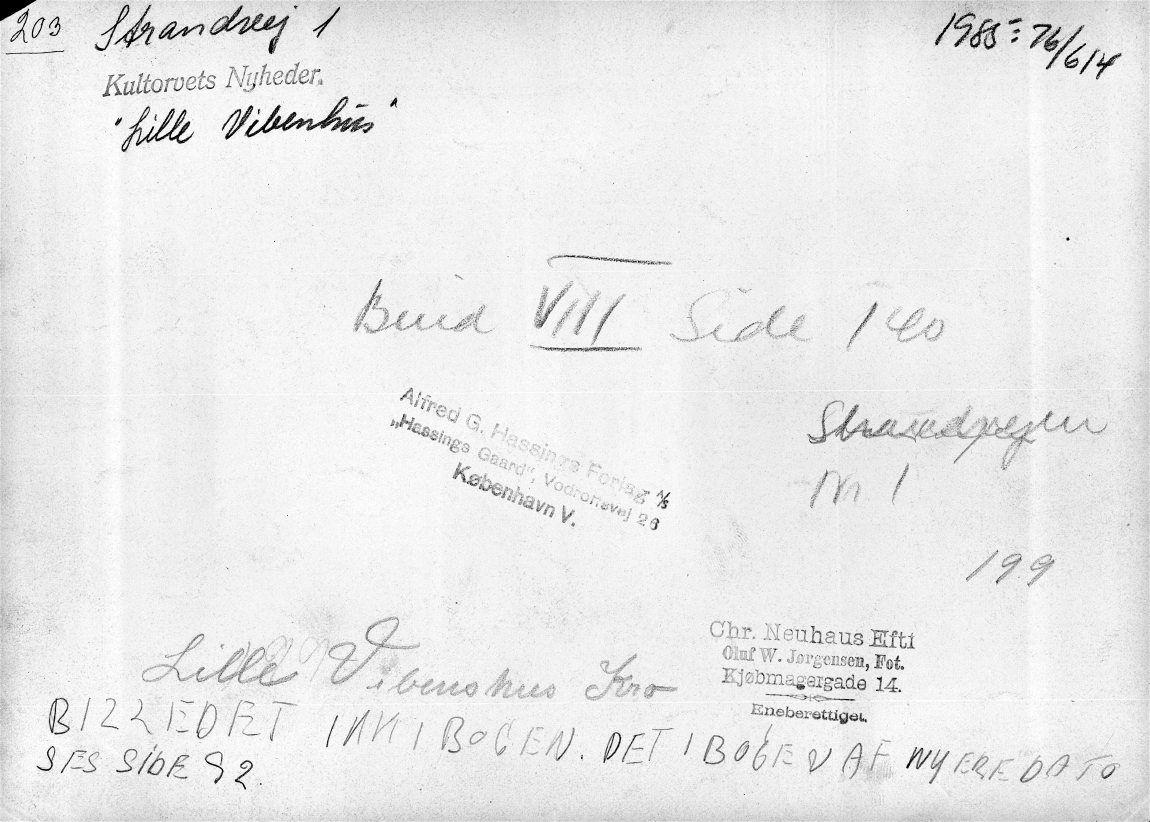 203
Strandvej 1
1985:76/614
Kultorvets Nyheder.
"Lille Vibenhus"
Bind VIII Side 140
Alfred G. Hassings Forlag A/S
„Hassings Gaard", Vodroffsvej 26
København V.
Strandvejen
Nr. 1
199
Chr. Neuhaus Eftf
Oluf W. Jørgensen, Fot.
Kjøbmagergade 14.
Eneberettiget.
Lille Vibenshus Kro
BILLEDET I BOGEN. DET I BOGEN AF NYERE DATO
SES SIDE 92.